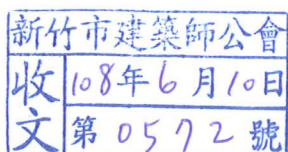 新竹市建築師公會
收文
108年6月10日
第0572號